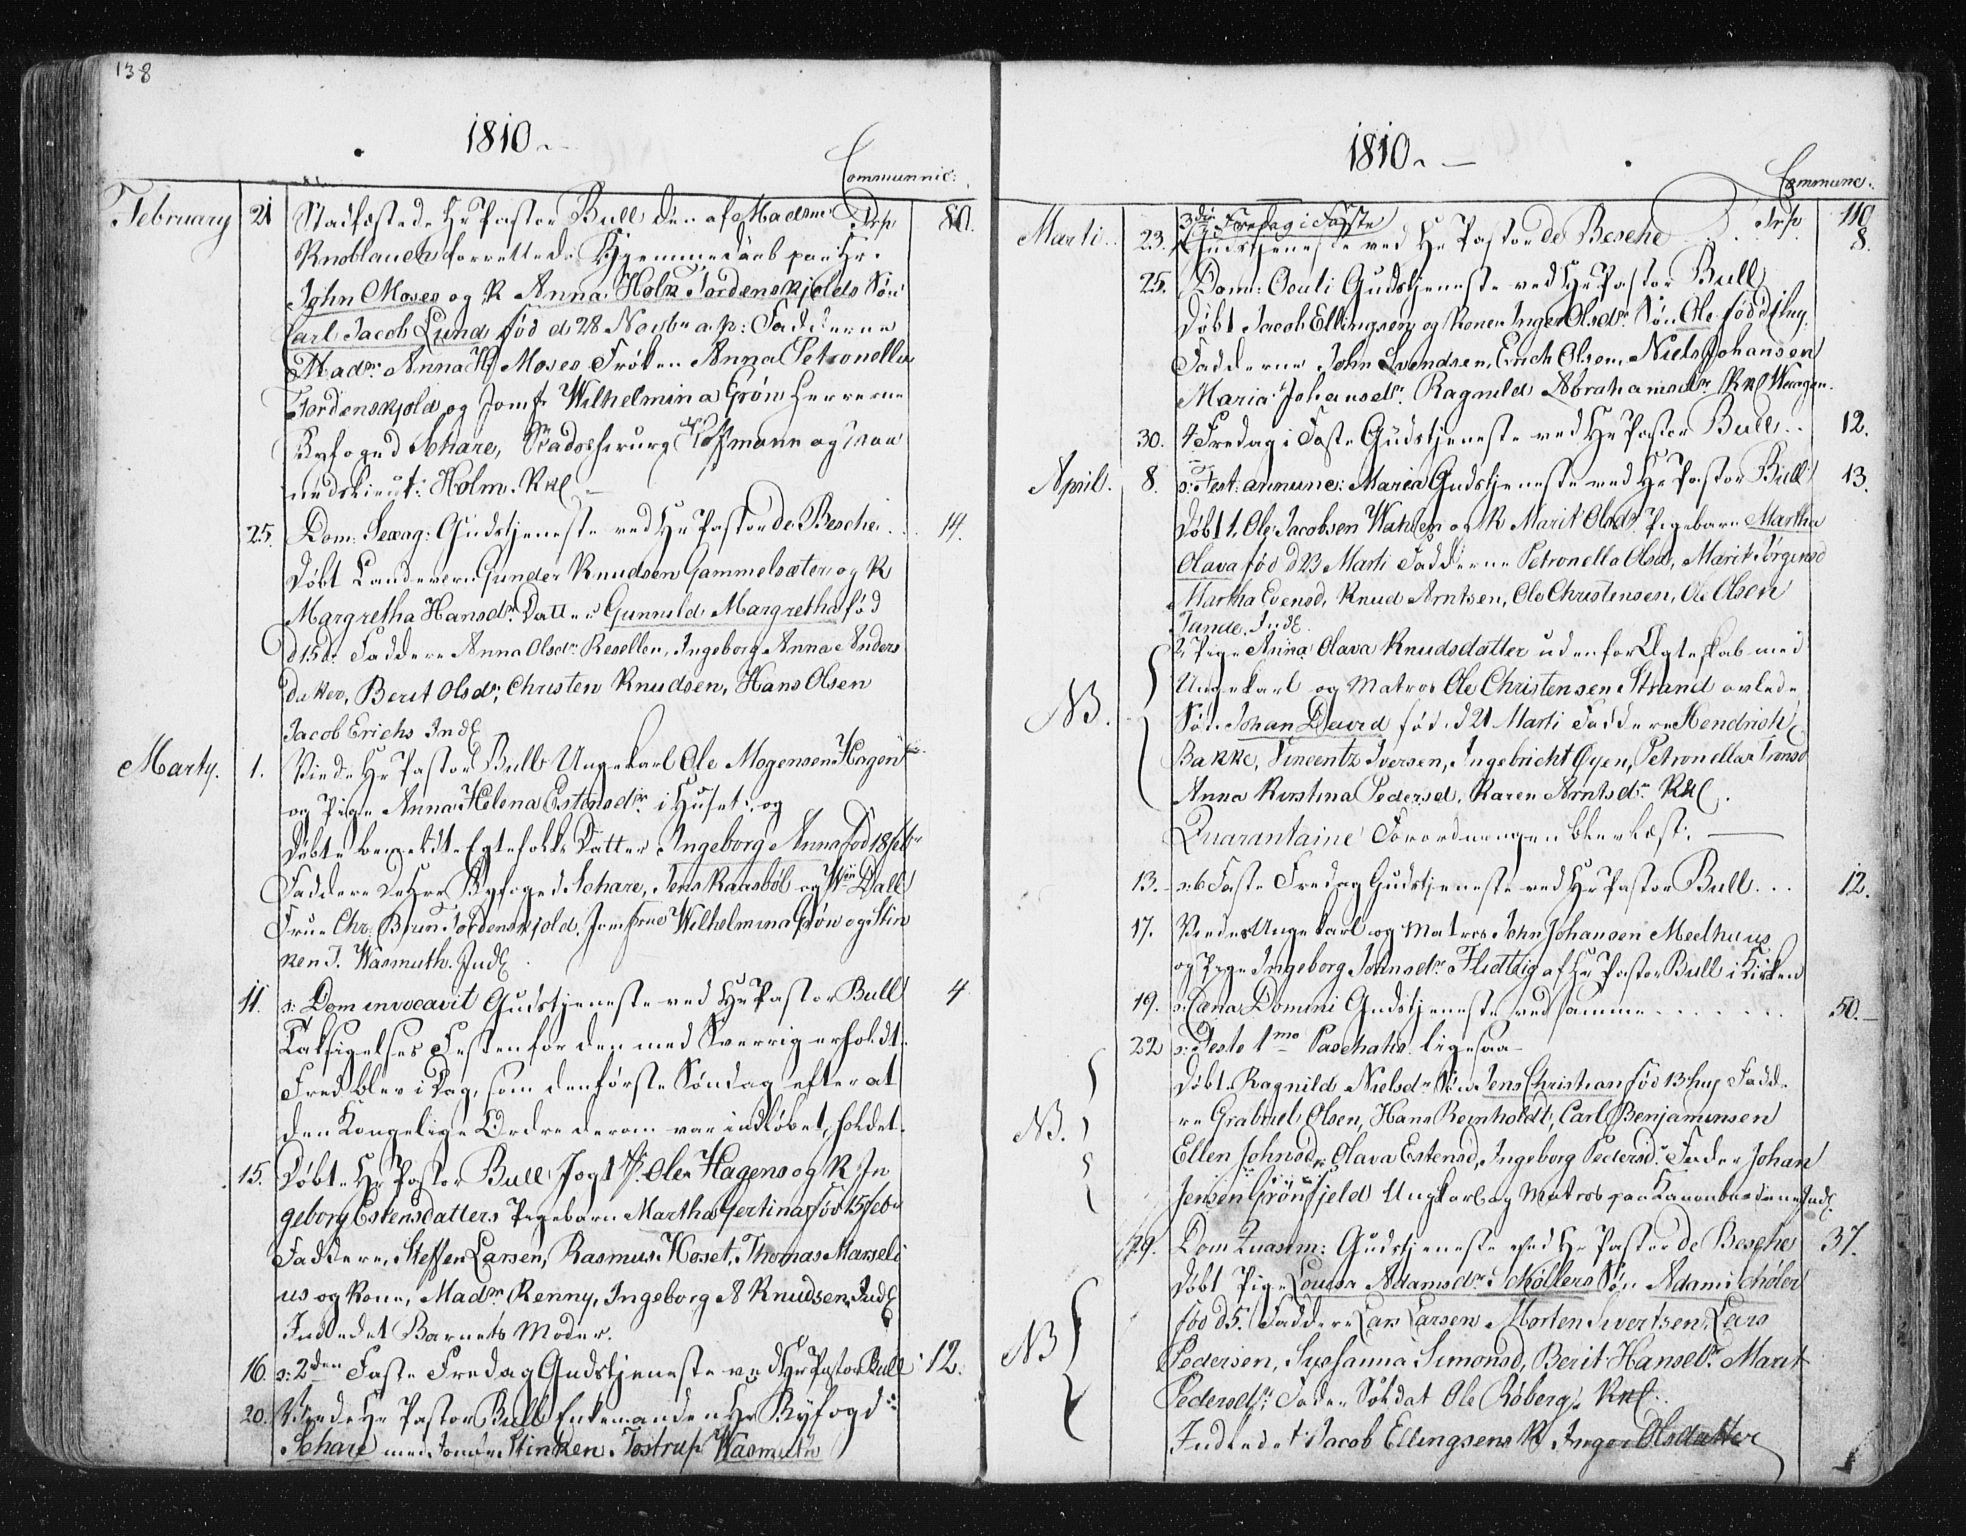 138
1810.
Communic:
February 21 Stadfæstede Hr Pastor Bull den af Madme Trp 80.
Knoblauch forrettede Hjemmedaab paa Hr.
John Moses og K Anna Holm Tordenskjolds Søn
Carl Jacob Lund fød d 28 Novbr a. p: Fadderne
Madm Anna H Moses Frøken Anna Petronella
Tordenskjold og Jomfr Wilhelmina Grøn Herrerne
Byfoged Schare, Stadschirurg Hoffmann og
Holm. Rkl
25. Dom: Sexag: Gudstjeneste ved Hr Pastor de Besche .. 14.
Døbt Landeværn Gunder Knudsen Gammelsæter og K
Margretha Hansdr Datter Gunnild Margretha fød
d 15 d. Faddere Anna Olsdr Resellen, Ingeborg Anna Anders
datter, Berit Olsdr, Christen Knudsen, Hans Olsen
Jacob Erichs Indl
Marty. 1. Viede Hr Pastor Bull Ungekarl Ole Mogensen Hagen
og Pige Anna Helena Estensdr i Huset, og
Døbte bemeldte Egtefolks Datter Ingeborg Anna fød 18 febr
Faddere De Hrr Byfoged Schare, Jens Raasbøl og Wm Dall
Frue Chr. Brun Tordenskjold, Jomfrue Wilhelmina Grøn og Stin
ken T. Wasmuth. Indl.
11. s: Dom invocavit Gudstjeneste ved Hr Pastor Bull 4
Taksigelses Festen for den med Sverrig erholdt
Fred blev i Dag, som den første Søndag efter at
den Kongelige Ordre derom var indløbet, holdet.
15. Døbte Hr Pastor Bull Jogt Sk. Ole Hagens og K In
geborg Estensdatters Pigebarn Martha Gertina fød 15 febr
Faddere, Steffen Larsen, Rasmus Hosset, Thomas Marseli
us og Kone, Madm Renny, Ingeborg A Knudsen Indl
Indledet Barnets Moder.
16. s: 2den Faste Fredag Gudstjeneste ved Hr Pastor Bull 12.
20. Viede Hr Pastor Bull Enkemanden Hr Byfogd
Schare med Jomfr Stinken Tostrup Wasmuth
1810.
Commune.
Marti. 23. 3die Fredag i Faste Trp 110
Gudstjeneste ved Hr Pastor de Besche 8.
25. Dom: Oculi Gudstjeneste ved Hr Pastor Bull
Døbt Jacob Ellingsens og Kone Inger Olsdr Søn Ole fød d
Fadderne John Svendsen, Erich Olsen, Niels Johansen
Maria Johansdr. Ragnild Abrahamsdr Rkl
30. 4 Fredag i Faste Gudstjeneste ved Hr Pastor Bull .. 12.
April. 8. s: Fest: annunc: Maria Gudstjeneste ved Hr Pastor Bull 13.
Døbt 1, Ole Jacobsen Wahlen og K Marit Olsdr Pigebarn Martha
Olava fød d 23 Marti Fadderne Petronella Olsd, Marit Jørgensd
Martha Evensd, Knud Arntsen, Ole Christensen, Ole Olsen
Tande. Indl
2 Pige Anna Olava Knudsdatter udenfor Ægteskab med
NB. Ungekarl og Matros Ole Christensen Strand avlede
Søn Johan David fød d 21 Marti Faddere Hendrich
Bakke, Vincentz Iversen, Ingebricht Øyen, Petronella Tronsd
Anna Kirstina Pedersd, Karen Arntsdr Rkl.
Quarantaine Forordningen blev læst.
13. s: 6 Faste Fredag Gudstjeneste ved Hr Pastor Bull ... 12.
17. Viedes Ungekarl og Matros John Johansen Meelhuus
og Pige Ingeborg Johnsdr Flidtlig af Hr Pastor Bull i Kirken
19. s: Cæna Domini Gudstjeneste ved samme ....... 50.
22 s: Festo 1mo Paschatis ligesaa
Døbt Ragnild Nielsdr Søn Jens Christian fød 13 huj Fadd
NB. re Grabriel Olsen, Hans Reinholdt, Carl Benjaminsen
Ellen Johnsdr, Olava Estensd, Ingeborg Pedersd. Fader Johan
Jensen Grønfjeld Ungkarl og Matros paa Kanonbaadene Indl.
29. Dom Quasim: Gudstjeneste ved Hr Pastor de Besche 37.
Døbt Pige Lovisa Adamsdr Møllers Søn Adam Møler
fød d 5. Faddere Lars Larsen Morten Sivertsen, Lars
NB Pedersen, Sussanna Simonsd, Berit Hansdr Marit
Pedersdr: Fader Soldat Ole Roberg. Rkl.
Indledet Jacob Ellingsens K Inger Olsdatter